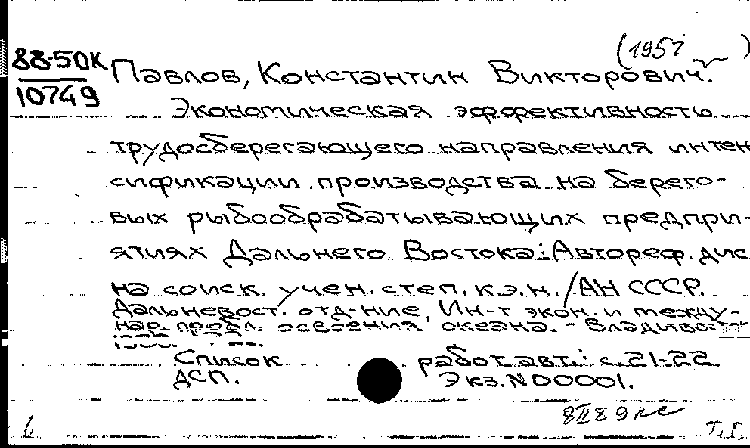 88-50К
10749
(1957
Павлов, Константин Викторович.
Экономическая эффективность
трудосберегающего направления интен
сификации производства на берего-
вых рыбообрабатывающих предпри-
ятиях Дальнего Востока: Автореф. дис
на соиск. учен. степ. к.э.н. / АН СССР.
Дальневост. отд-ние, Ин-т экон. и между-
нар. пробл. освоения океана. - Владивост
Список работ авт.: с.21-22
ДСП. Экз. N00001.